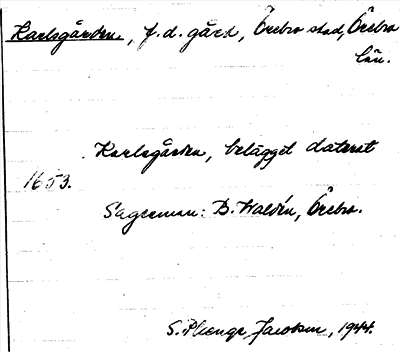 Karlsgården, f.d. gård, Örebro stad, Örebro
län.
Karlsgården, belägget daterat
1653.
Sagesman: B. Waldén, Örebro.
S. Plenge Jacobsen, 1944.